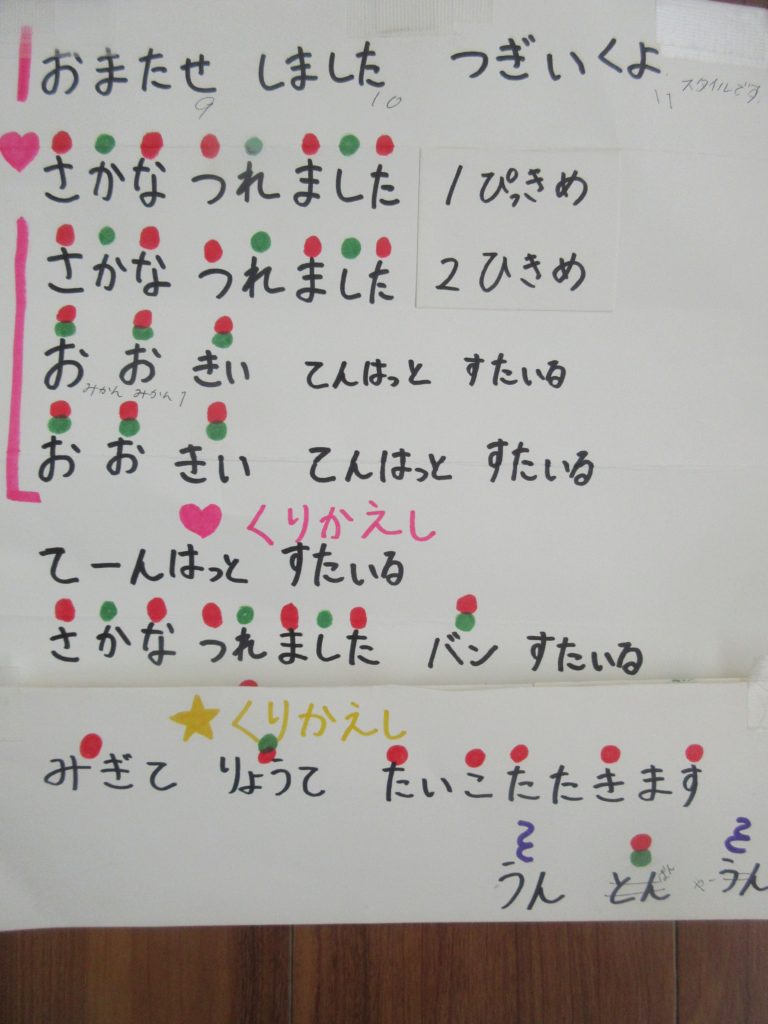 おまたせ しました つぎいくよ
9 10 11 スタイルです
さかな つれました 1ぴっきめ
さかな つれました 2ひきめ
お お きい てんはっと すたいる
みかん みかん 1
お お きい てんはっと すたいる
くりかえし
てーんはっと すたいる
さかな つれました バン すたいる
くりかえし
みぎて りょうて たいこたたきます
うん とん うん